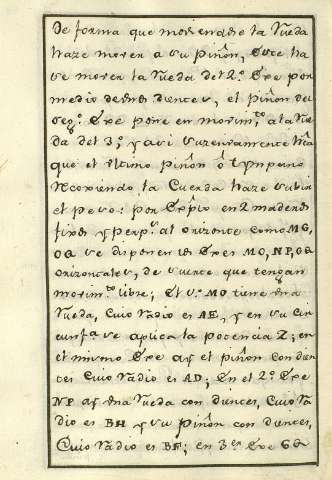 De forma que moviendose la Rueda
haze mover a su piñon, este ha
se mover la Rueda del 2º. Exe por
medio de sus dientes, el piñon del
segº. Exe pone en movimto. a la Rue
da del 3º; y asi sucesivamente hta
que el ultimo piñon ò tympano
recoxiendo la Cuerda haze subir
el peso: por Expio en 2 maderos
fixos y perps. al orizonte como MG,
OQ se disponen los Exes MO, NP, GQ
orizontales, de suerte que tengan
movimto. libre; El 1º. MO tiene una
Rueda, Cuio radio es AE, y en su cir
cunfa. se aplica la potencia Z; en
el mismo Exe ay el piñon con dien
tes Cuio radio es AD; En el 2º. Exe
NP ay una Rueda con dientes, Cuio ra
dio es BH y su piñon con dientes,
Cuio radio es BF; en 3er. Exe GQ